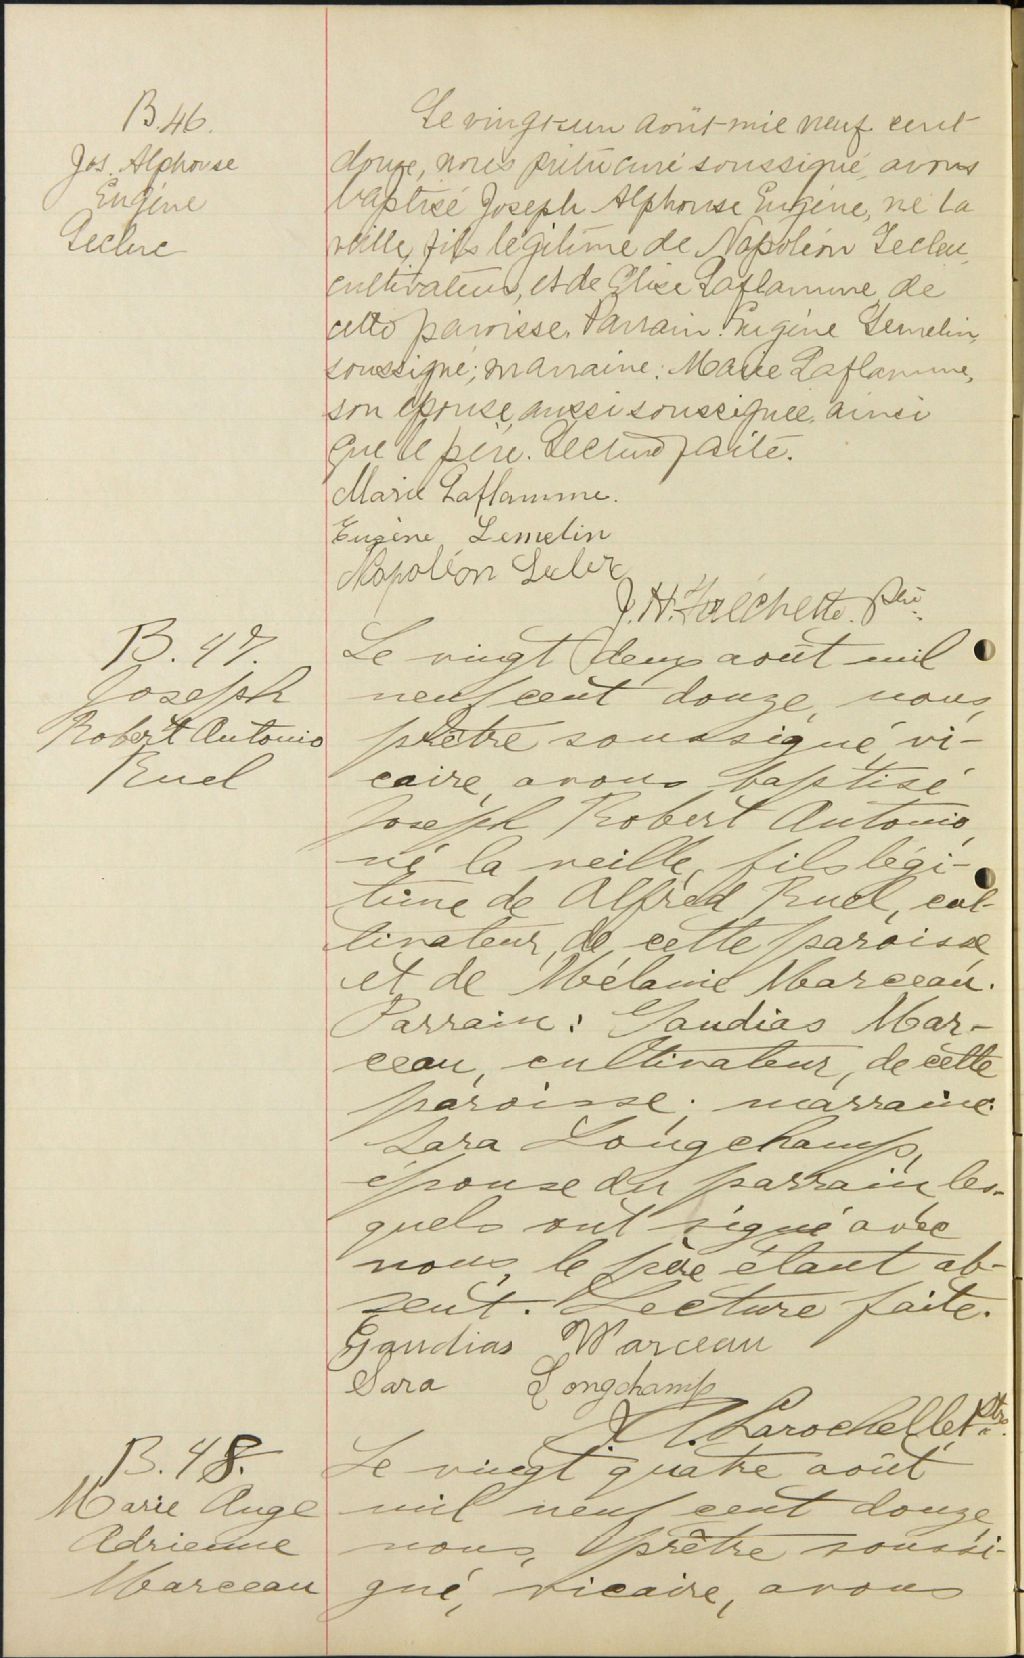 B.46.
Jos. Alphonse
Eugène
Leclerc
Le vingt-un août mil neuf cent
douze, nous prêtre curé soussigné, avons
baptisé Joseph Alphonse Eugène, né la
veille, fils légitime de Napoléon Leclerc,
cultivateur, et de Elise Laflamme, de
cette paroisse. Parrain: Eugène Lemelin,
soussigné; marraine: Marie Laflamme,
son épouse, aussi soussignée, ainsi
que le père. Lecture faite.
Marie Laflamme.
Eugène Lemelin
Napoléon Leclerc
J. H. Fréchette. Ptre.
B. 47.
Joseph
Robert Antonio
Ruel
Le vingt deux août mil
neuf cent douze, nous,
prêtre soussigné, vi-
caire, avons baptisé
Joseph Robert Antonio,
né la veille, fils légi-
time de Alfred Ruel, cul-
tivateur, de cette paroisse,
et de Mélanie Marceau.
Parrain: Gaudias Mar-
ceau, cultivateur, de cette
paroisse; marraine:
Sara Longchamp,
épouse du parrain, les-
quels ont signé avec
nous, le père étant ab-
sent. Lecture faite.
Gaudias Marceau
Sara Longchamp
Larochelle Ptre.
B. 48.
Marie Ange
Adrienne
Marceau
Le vingt quatre août
mil neuf cent douze,
nous, prêtre soussi-
gné, vicaire, avons